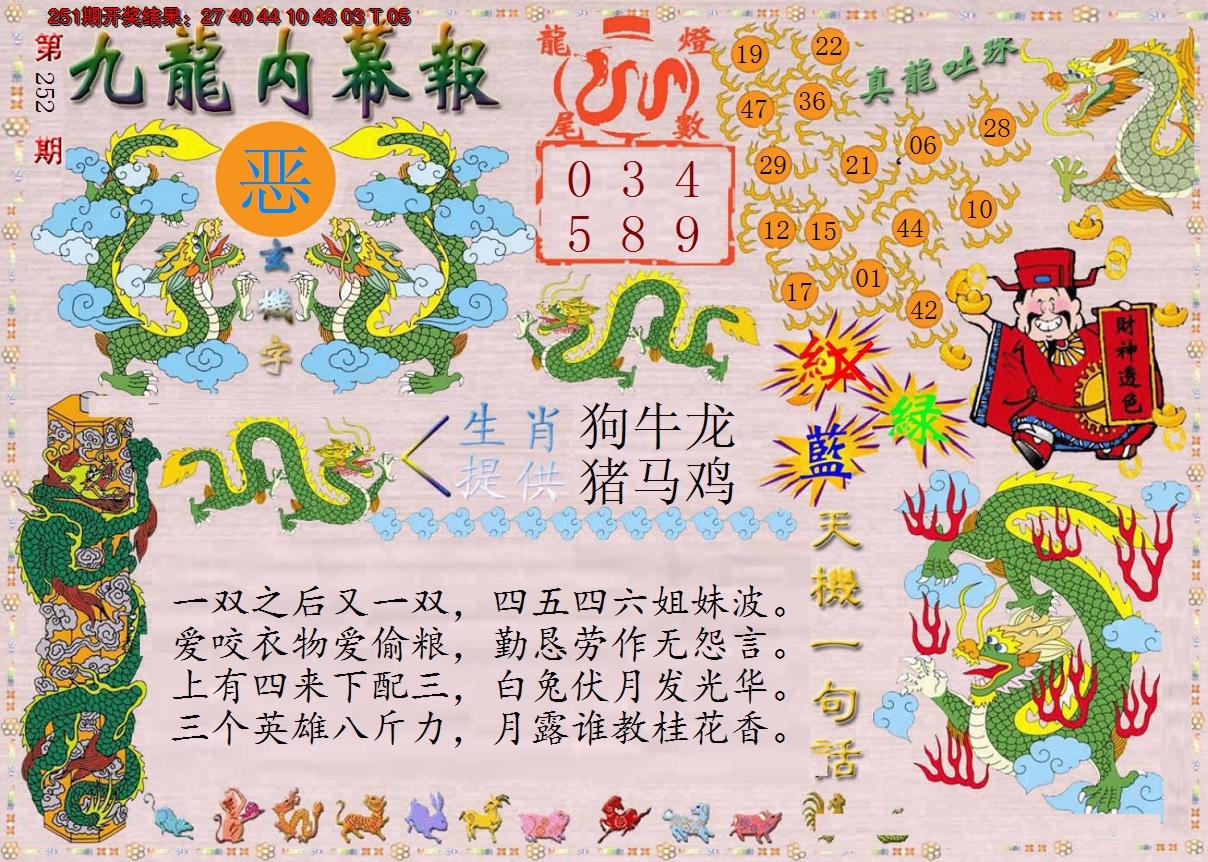 251期开奖结果：27 40 44 10 48 03 T 05
第252期
九龍内幕報
恶
玄機字
龍燈
尾數
0 3 4
5 8 9
真龍吐珠
19 22
47 36
29 21 06 28
12 15 44 10
17 01 42
紅
綠
藍
財神透色
生肖提供
狗牛龙
猪马鸡
天機一句话
一双之后又一双，四五四六姐妹波。
爱咬衣物爱偷粮，勤恳劳作无怨言。
上有四来下配三，白兔伏月发光华。
三个英雄八斤力，月露谁教桂花香。